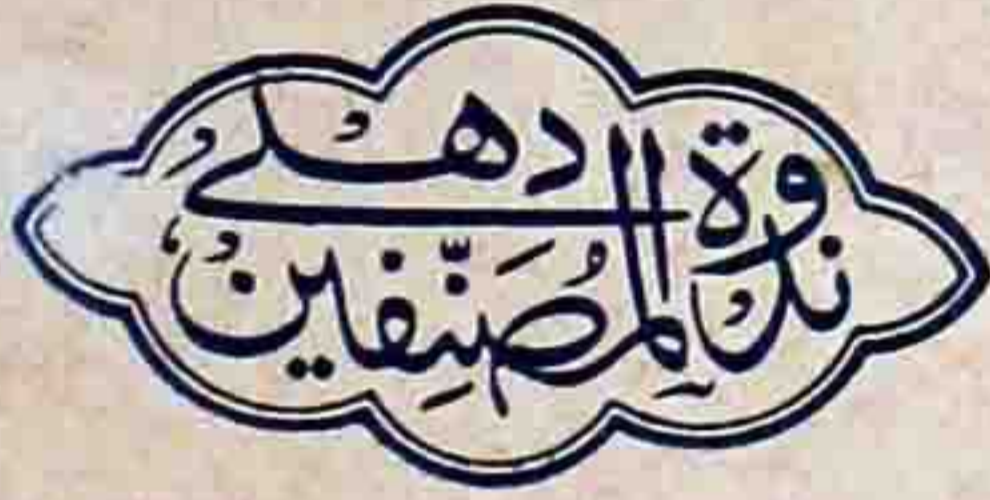 ندوة المُصَنِّفِين دهلی